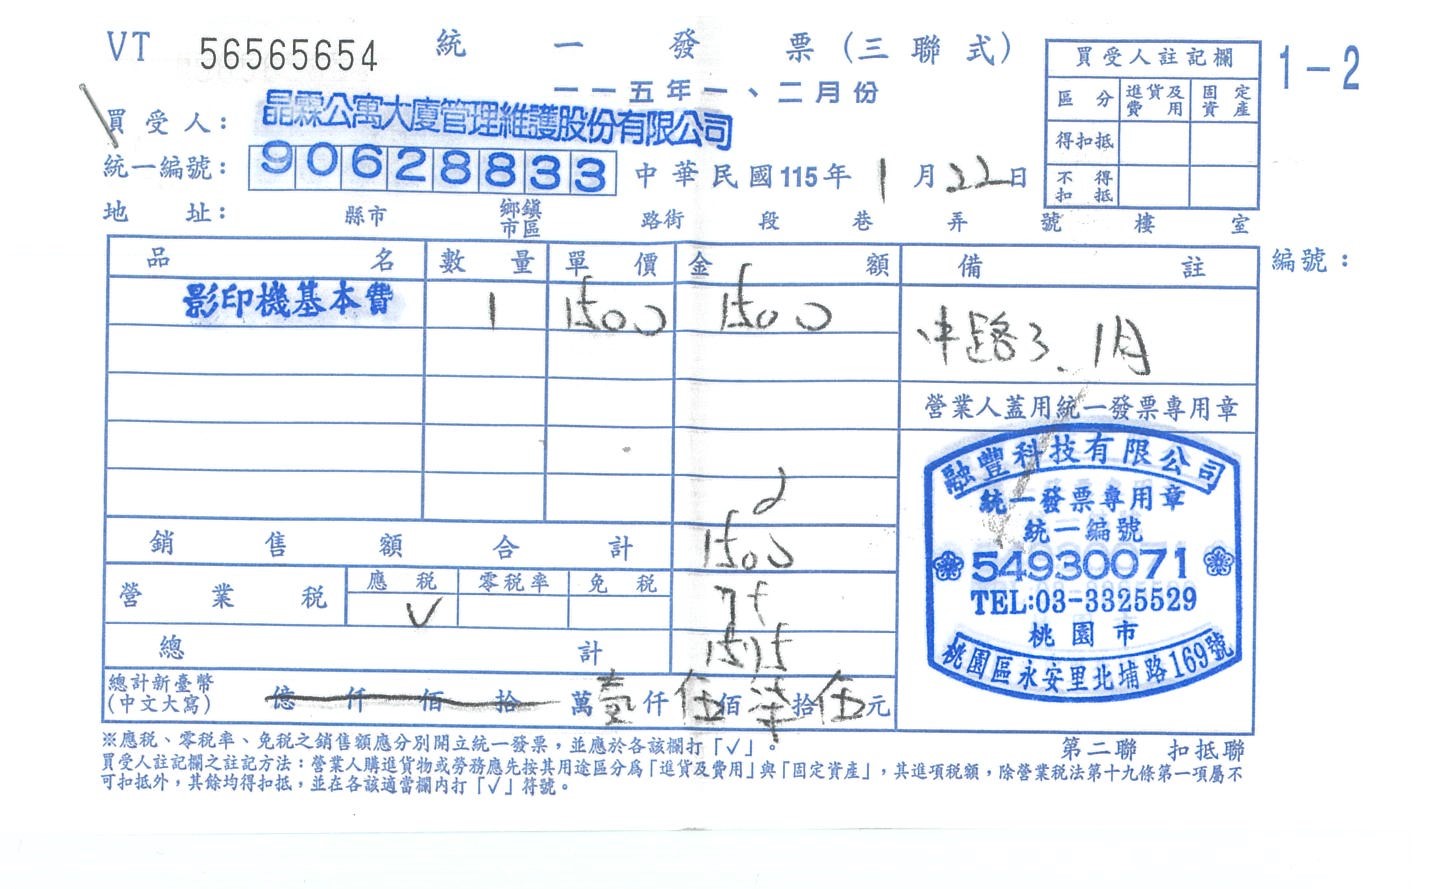 VT 56565654 統一發票(三聯式) 1-2
一一五年一、二月份
買受人註記欄
區分 進貨及費用 固定資產
得扣抵
不得扣抵
買受人: 晶霖公寓大廈管理維護股份有限公司
統一編號: 90628833 中華民國115年1月22日
地址: 縣市 鄉鎮市區 路街 段 巷 弄 號 樓 室
品名 數量 單價 金額 備註 編號:
影印機基本費 1 1500 1500 中路3、1月
營業人蓋用統一發票專用章
融豐科技有限公司
統一發票專用章
統一編號
54930071
TEL:03-3325529
桃園市
桃園區永安里北埔路169號
銷售額合計 1500
營業稅 應稅 零稅率 免稅 75
V
總計 1575
總計新臺幣
(中文大寫) 億仟佰拾萬壹仟伍佰柒拾伍元
※應稅、零稅率、免稅之銷售額應分別開立統一發票,並應於各該欄打「✓」。
第二聯 扣抵聯
買受人註記欄之註記方法:營業人購進貨物或勞務應先按其用途區分為「進貨及費用」與「固定資產」,其進項稅額,除營業稅法第十九條第一項屬不
可扣抵外,其餘均得扣抵,並在各該適當欄內打「✓」符號。